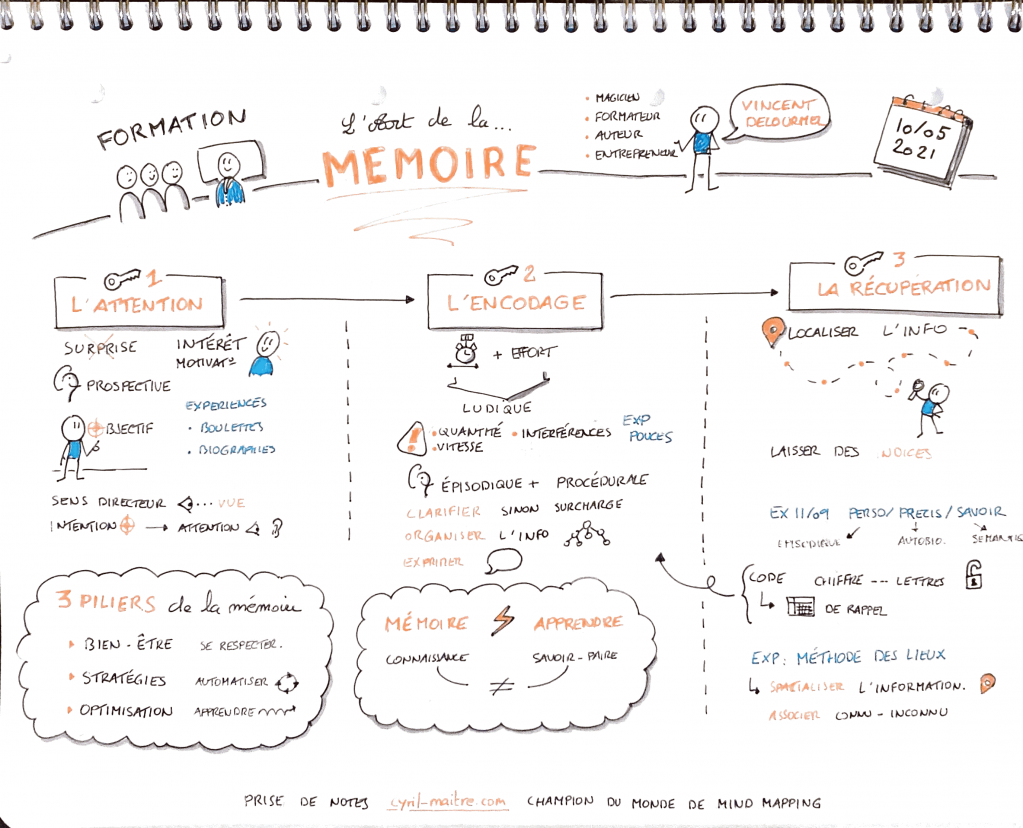 FORMATION
L'Art de la...
MEMOIRE
• MAGICIEN
• FORMATEUR
• AUTEUR
• ENTREPRENEUR
VINCENT
DELOURMEL
10/05
2021
1
L'ATTENTION
SURPRISE
INTÉRÊT
MOTIVAT°
PROSPECTIVE
OBJECTIF
EXPERIENCES
• BOULETTES
• BIOGRAPHIES
SENS DIRECTEUR ... VUE
INTENTION → ATTENTION
3 PILIERS de la mémoire
BIEN-ÊTRE SE RESPECTER.
STRATÉGIES AUTOMATISER
OPTIMISATION APPRENDRE
2
L'ENCODAGE
+ EFFORT
LUDIQUE
! • QUANTITÉ • INTERFÉRENCES
• VITESSE
EXP
POUCES
ÉPISODIQUE + PROCÉDURALE
CLARIFIER SINON SURCHARGE
ORGANISER L'INFO
EXPRIMER
MÉMOIRE APPRENDRE
CONNAISSANCE SAVOIR-FAIRE
≠
3
LA RÉCUPÉRATION
LOCALISER L'INFO
LAISSER DES INDICES
EX 11/09 PERSO/PRECIS/SAVOIR
EPISODIQUE AUTOBIO.
CODE CHIFFRE --- LETTRES
DE RAPPEL
EXP: MÉTHODE DES LIEUX
SPATIALISER L'INFORMATION.
ASSOCIER CONNU - INCONNU
PRISE DE NOTES cyril-maitre.com CHAMPION DU MONDE DE MIND MAPPING